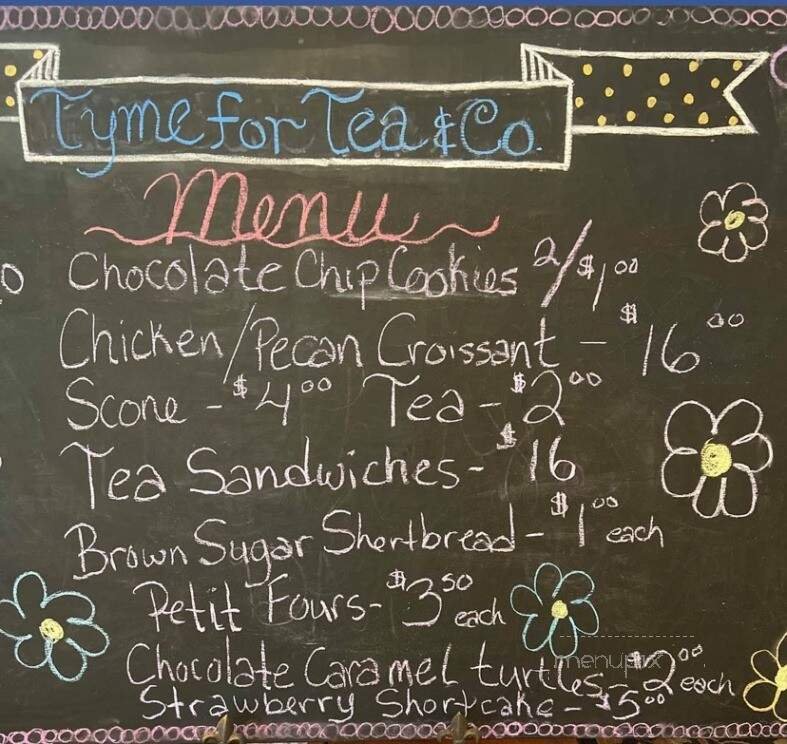 Tyme for Tea & Co.
Menu
Chocolate Chip Cookies 2/$1.00
Chicken/Pecan Croissant - $16.00
Scone - $4.00 Tea - $2.00
Tea Sandwiches - $16
Brown Sugar Shortbread - $1.00 each
Petit Fours - $3.50 each
Chocolate Caramel turtles $2.00 each
Strawberry Shortcake - $5.00
menupix